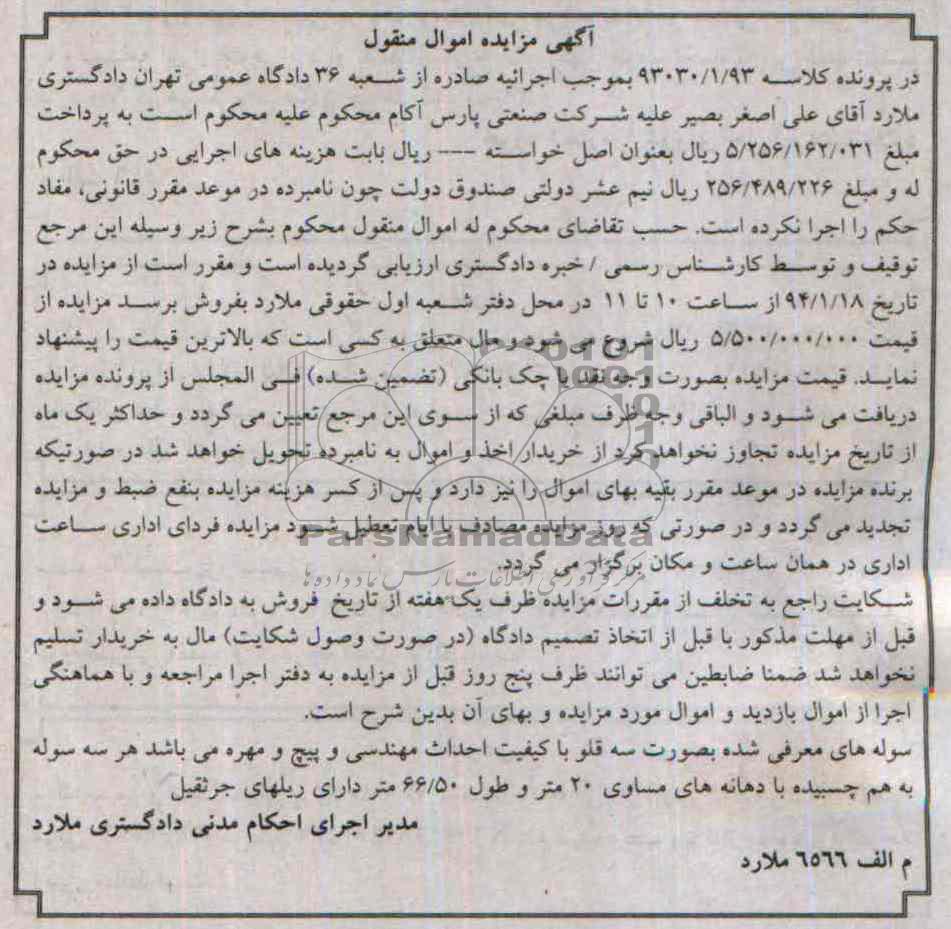 آگهی مزایده اموال منقول
در پرونده کلاسه ۹۳۰۳۰/۱/۹۳ بموجب اجرائیه صادره از شعبه ۳۶ دادگاه عمومی تهران دادگستری
ملارد آقای علی اصغر بصیر علیه شرکت صنعتی پارس آکام محکوم علیه محکوم است به پرداخت
مبلغ ۵/۲۵۶/۱۶۲/۰۳۱ ریال بعنوان اصل خواسته --- ریال بابت هزینه های اجرایی در حق محکوم
له و مبلغ ۲۵۶/۴۸۹/۲۲۶ ریال نیم عشر دولتی صندوق دولت چون نامبرده در موعد مقرر قانونی، مفاد
حکم را اجرا نکرده است. حسب تقاضای محکوم له اموال منقول محکوم بشرح زیر وسیله این مرجع
توقیف و توسط کارشناس رسمی / خبره دادگستری ارزیابی گردیده است و مقرر است از مزایده در
تاریخ ۹۴/۱/۱۸ از ساعت ۱۰ تا ۱۱ در محل دفتر شعبه اول حقوقی ملارد بفروش برسد مزایده از
قیمت ۵/۵۰۰/۰۰۰/۰۰۰ ریال شروع می شود و مال متعلق به کسی است که بالاترین قیمت را پیشنهاد
نماید. قیمت مزایده بصورت وجه نقد یا چک بانکی (تضمین شده) فی المجلس از پرونده مزایده
دریافت می شود و الباقی وجه ظرف مبلغی که از سوی این مرجع تعیین می گردد و حداکثر یک ماه
از تاریخ مزایده تجاوز نخواهد کرد از خریدار اخذ و اموال به نامبرده تحویل خواهد شد در صورتیکه
برنده مزایده در موعد مقرر بقیه بهای اموال را نیز دارد و پس از کسر هزینه مزایده بنفع ضبط و مزایده
تجدید می گردد و در صورتی که روز مزایده مصادف با ایام تعطیل شود مزایده فردای اداری ساعت
اداری در همان ساعت و مکان برگزار می گردد.
ParsNamadData
مرکز فرآوری اطلاعات پارس نماد داده ها
شکایت راجع به تخلف از مقررات مزایده ظرف یک هفته از تاریخ فروش به دادگاه داده می شود و
قبل از مهلت مذکور با قبل از اتخاذ تصمیم دادگاه (در صورت وصول شکایت) مال به خریدار تسلیم
نخواهد شد ضمنا ضابطین می توانند ظرف پنج روز قبل از مزایده به دفتر اجرا مراجعه و با هماهنگی
اجرا از اموال بازدید و اموال مورد مزایده و بهای آن بدین شرح است.
سوله های معرفی شده بصورت سه قلو با کیفیت احداث مهندسی و پیچ و مهره می باشد هر سه سوله
به هم چسبیده با دهانه های مساوی ۲۰ متر و طول ۶۶/۵۰ متر دارای ریلهای جرثقیل
مدیر اجرای احکام مدنی دادگستری ملارد
م الف ٦٥٦٦ ملارد